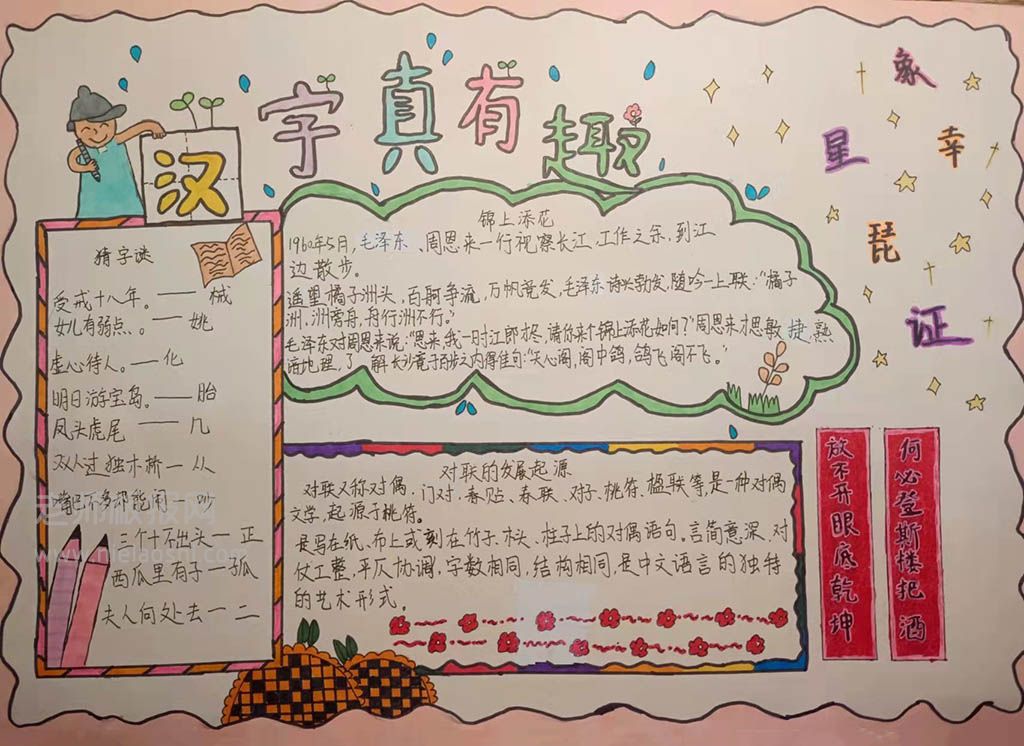 汉字真有趣
猜字谜
受戒十八年。—— 械
女儿有弱点。—— 姚
虚心待人。—— 化
明日游宝岛。—— 胎
凤头虎尾 —— 几
双人过独木桥 — 从
嘴巴不多都能闹 — 吵
三个十不出头 — 正
西瓜里有子 — 孤
夫人何处去 — 二
锦上添花
1960年5月,毛泽东、周恩来一行视察长江,工作之余,到江
边散步。
遥望橘子洲头,百舸争流,万帆竞发,毛泽东诗兴勃发,随吟一上联:“橘子
洲,洲旁舟,舟行洲不行。”
毛泽东对周恩来说:“恩来,我一时江郎才尽,请你来个锦上添花如何?”周恩来才思敏捷,熟
谙地理,了解长沙竟于百步之内得佳句:“天心阁,阁中鸽,鸽飞阁不飞。”
对联的发展起源
对联又称对偶、门对、春贴、春联、对子、桃符、楹联等,是一种对偶
文学,起源于桃符。
是写在纸、布上或刻在竹子、木头、柱子上的对偶语句。言简意深、对
仗工整,平仄协调,字数相同,结构相同,是中文语言的独特
的艺术形式。
象
星
幸
琵
证
何必登斯楼把酒
放不开眼底乾坤
老师板报网